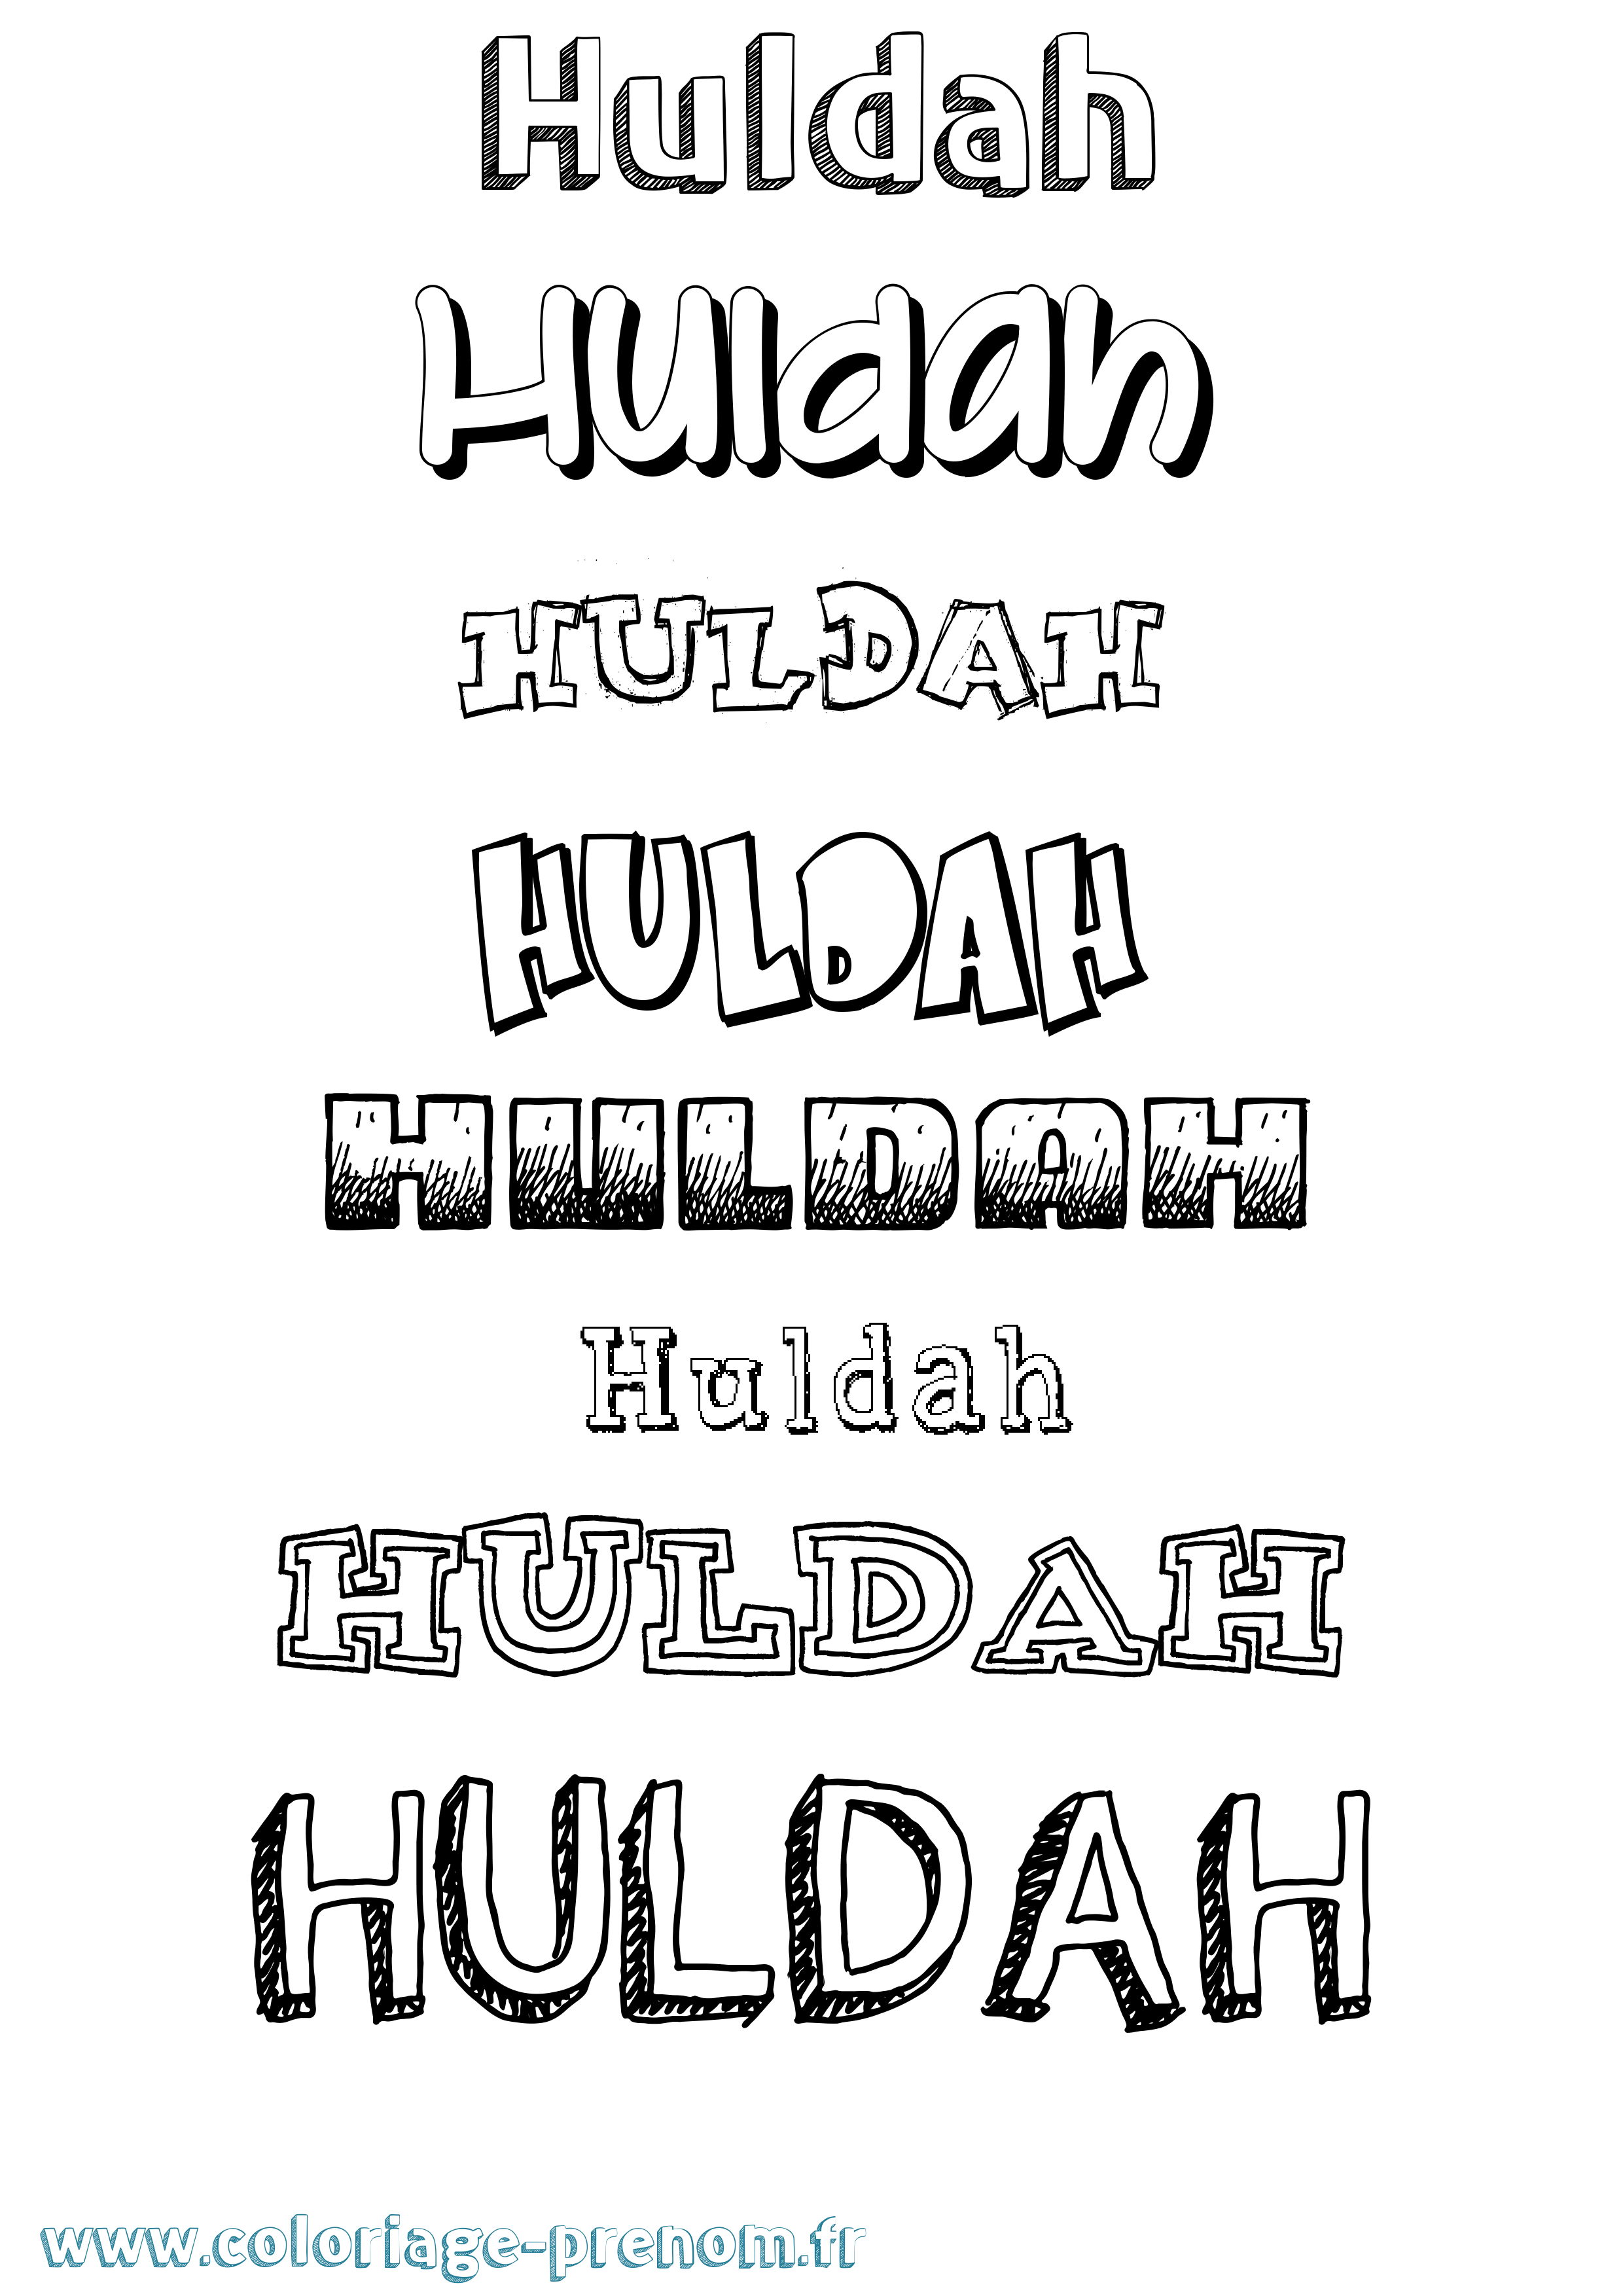 Huldah
Huldah
HULDAH
HULDAH
HULDAH
Huldah
HULDAH
HULDAH
www.coloriage-prenom.fr